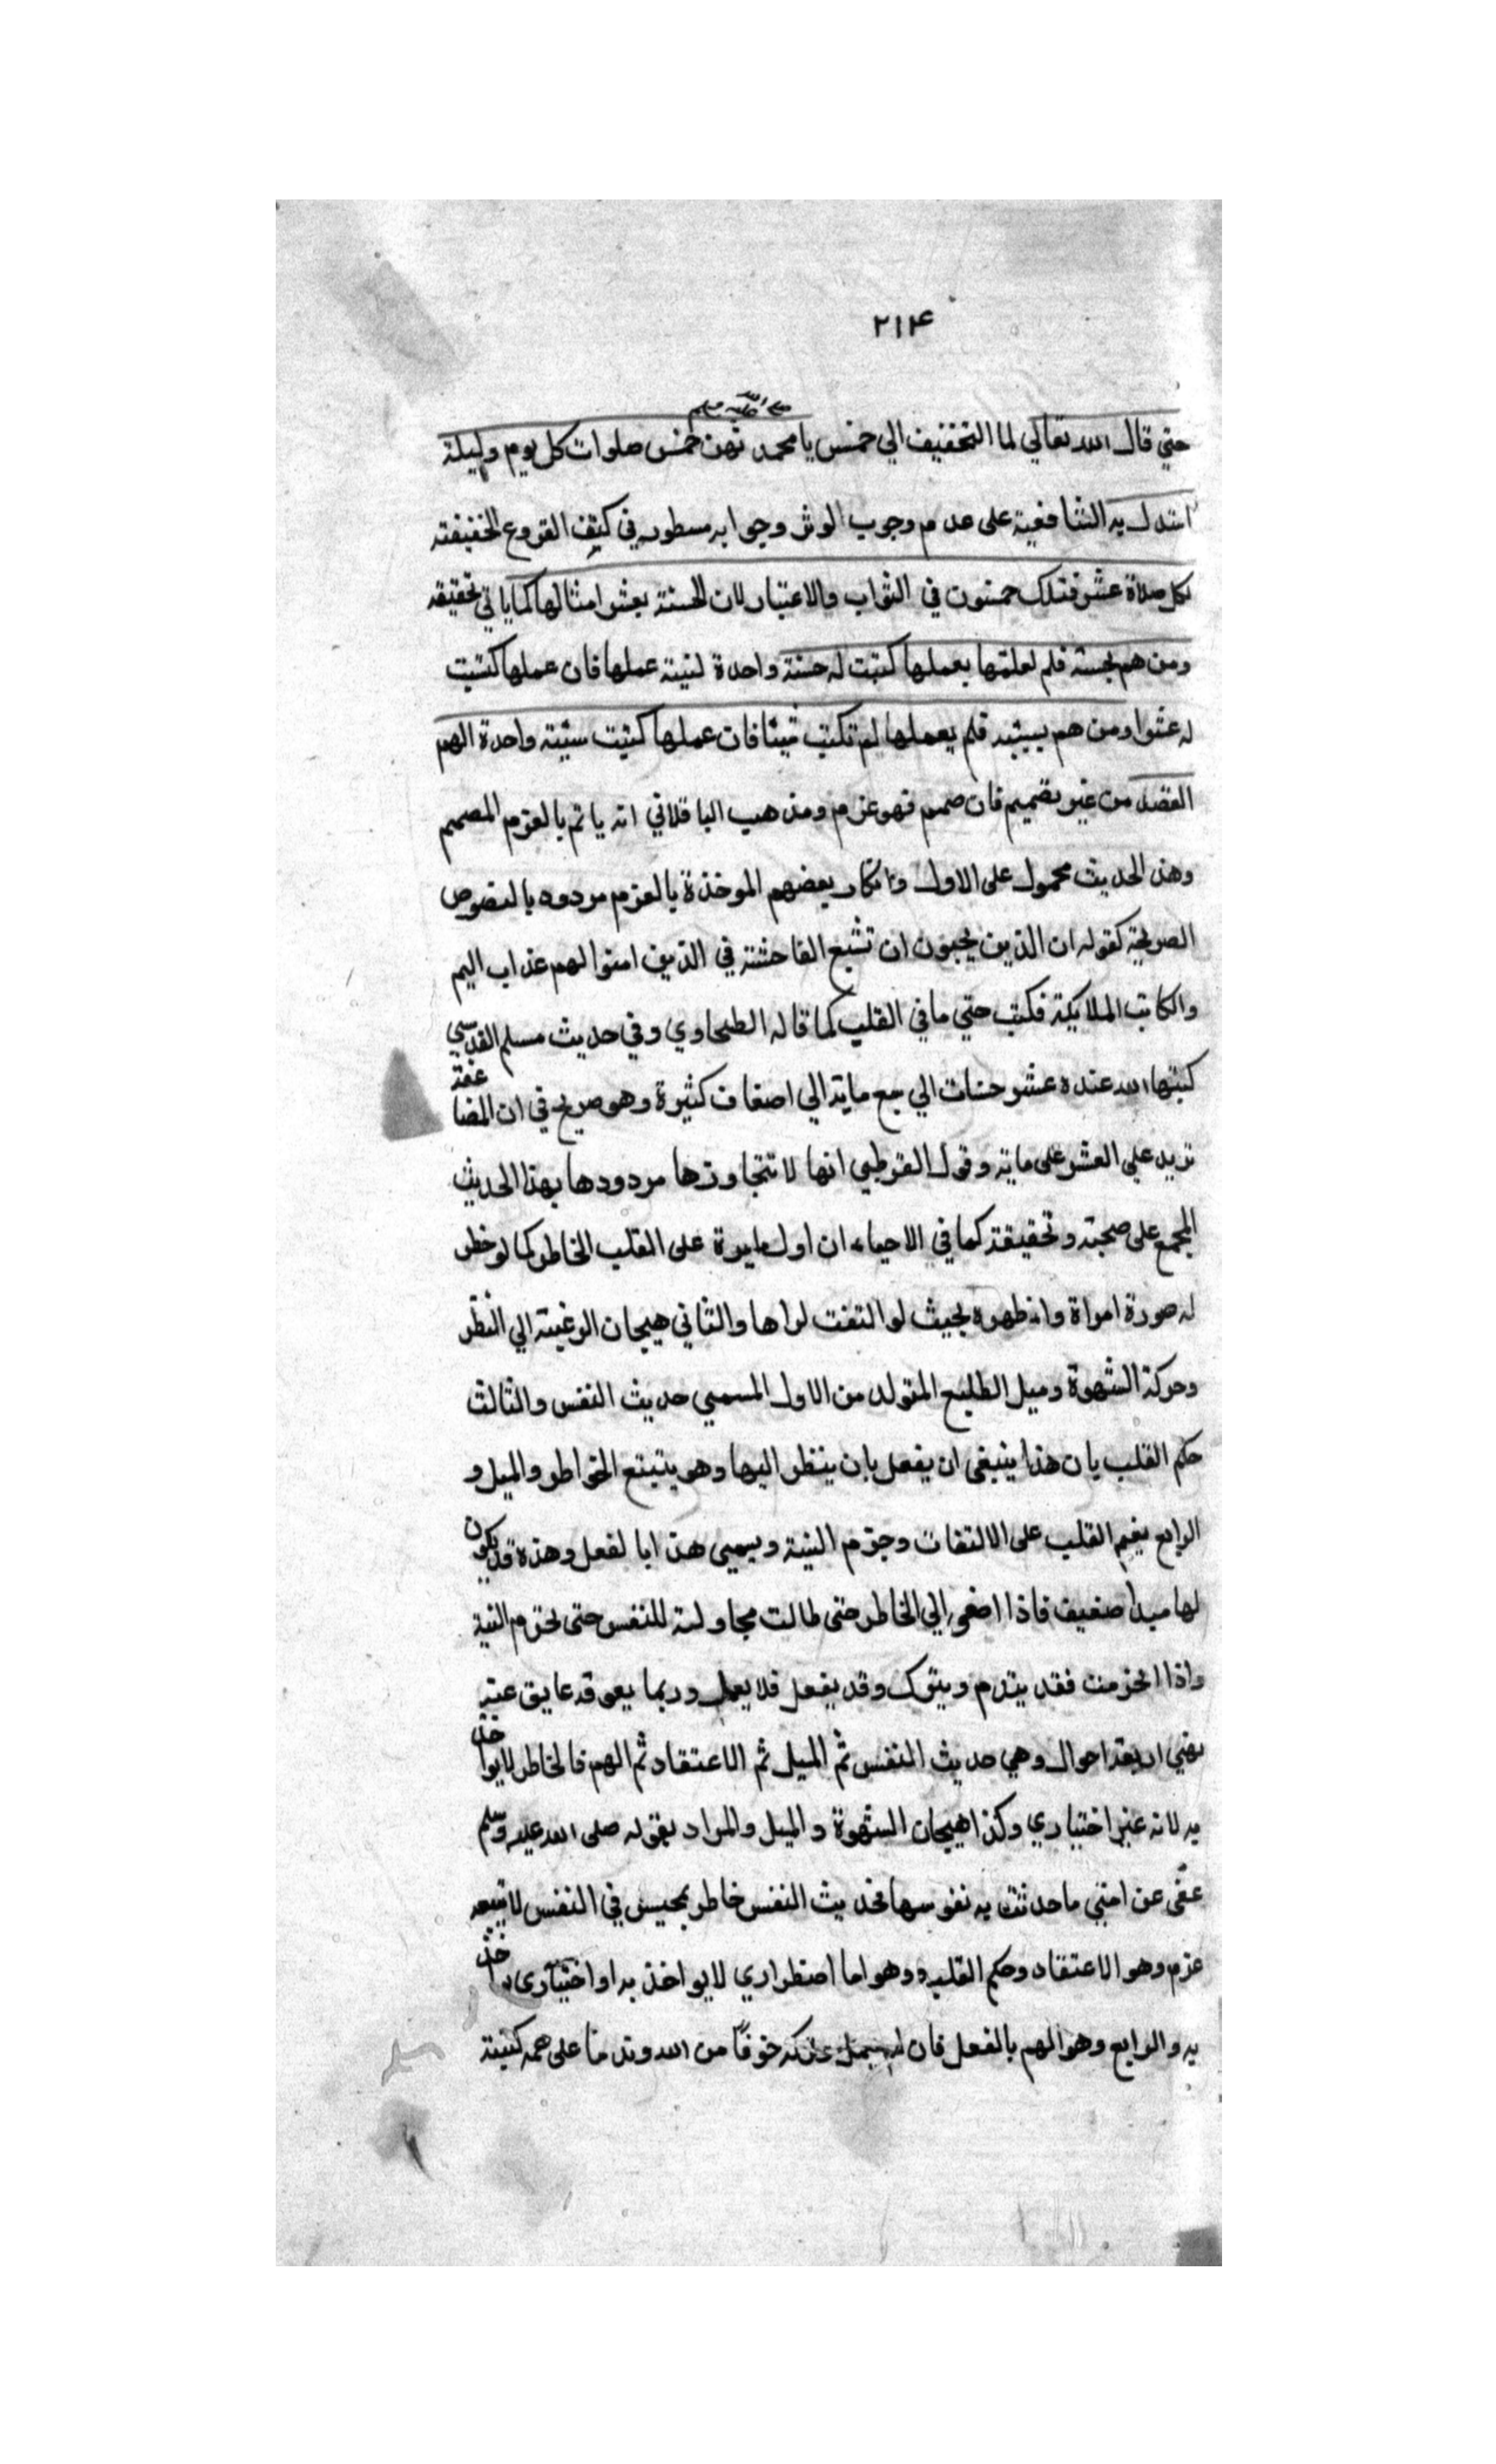 ٢١٤
صلى الله عليه وسلم
حتي قال الله تعالي لما التخفيف الي خمس يا محمد تهن خمس صلوات كل يوم وليلة
استدل به الشافعية على عدم وجوب الوتر وجوابه مسطور في كتب الفروع الخفيفته
لكل صلاة عشر فتلك خمسون في الثواب والاعتبار لان الحسنة بعشر امثالها كما ياتي تحقيقه
ومن هم بحسنة فلم لعلمتها بعملها كتبت له حسنة واحدة لنيته عملها فان عملها كتبت
له عشرا ومن هم بسيئه فلم يعملها لم تكتب شيئا فان عملها كتبت سيئة واحدة الهم
القصد من غير تصميم فان صمم فهو عزم ومذهب الباقلاني انه ياثم بالعزم المصمم
وهذ الحديث محمول على الاول وانكار بعضهم الموخذة بالعزم مردود بالنصوص
الصريحة كقوله ان الذين يحبون ان تشيع الفاحشة في الذين امنوا لهم عذاب اليم
والكاتب الملايكة فكتب حتي ما في القلب كما قاله الطحاوي وفي حديث مسلم القدسي
كتبها الله عنده عشر حسنات الي سبع ماية الي اضعاف كثيرة وهو صريح في ان المضاعفة
تزيد علي العشر على ماية وقول القرطبي انها لا تتجاوزها مردودها بهذا الحديث
المجمع على صحبته وتحقيقة كما في الاحياء ان اول ما يرد على القلب الخاطر كما لو خطر
له صورة امراة وانه ظهره بحيث لو التفت لراها والثاني هيجان الرغبة الي النظر
وحركة الشهوة وميل الطبيع المتولد من الاول المسمي حديث النفس والثالث
حكم القلب بان هذا ينبغي ان يفعل بان ينظر اليها وهو يتبتع الخواطر والميل و
الرابع يغيم القلب على الالتفات وجزم النية ويسمي هذا بالفعل وهذه قد يكون
لها مبدا ضعيف فاذا اصغي الي الخاطر حتى طالت مجاولته للنفس حتى لحزم النية
واذا انحزمت فقد يندم ويترك وقد يغفل فلا يعمل وربما يعوقه عايق عنه
بقي اربعة احوال وهي حديث النفس ثم الميل ثم الاعتقاد ثم الهم فالخاطر لا يواخذ
به لانه غير اختياري وكذا هيجان الشهوة والميل والمراد بقوله صلى الله عليه وسلم
عفى عن امتي ما حدثت به نفوسها فحديث النفس خاطر بحيس في النفس لا يتبعه
عزم وهو الاعتقاد وحكم القلب وهو اما اضطراري لا يواخذ به او اختياري يواخذ
به والرابع وهو الهم بالفعل فان لم يعمل خوفًا من الله وندما على همه كتبته